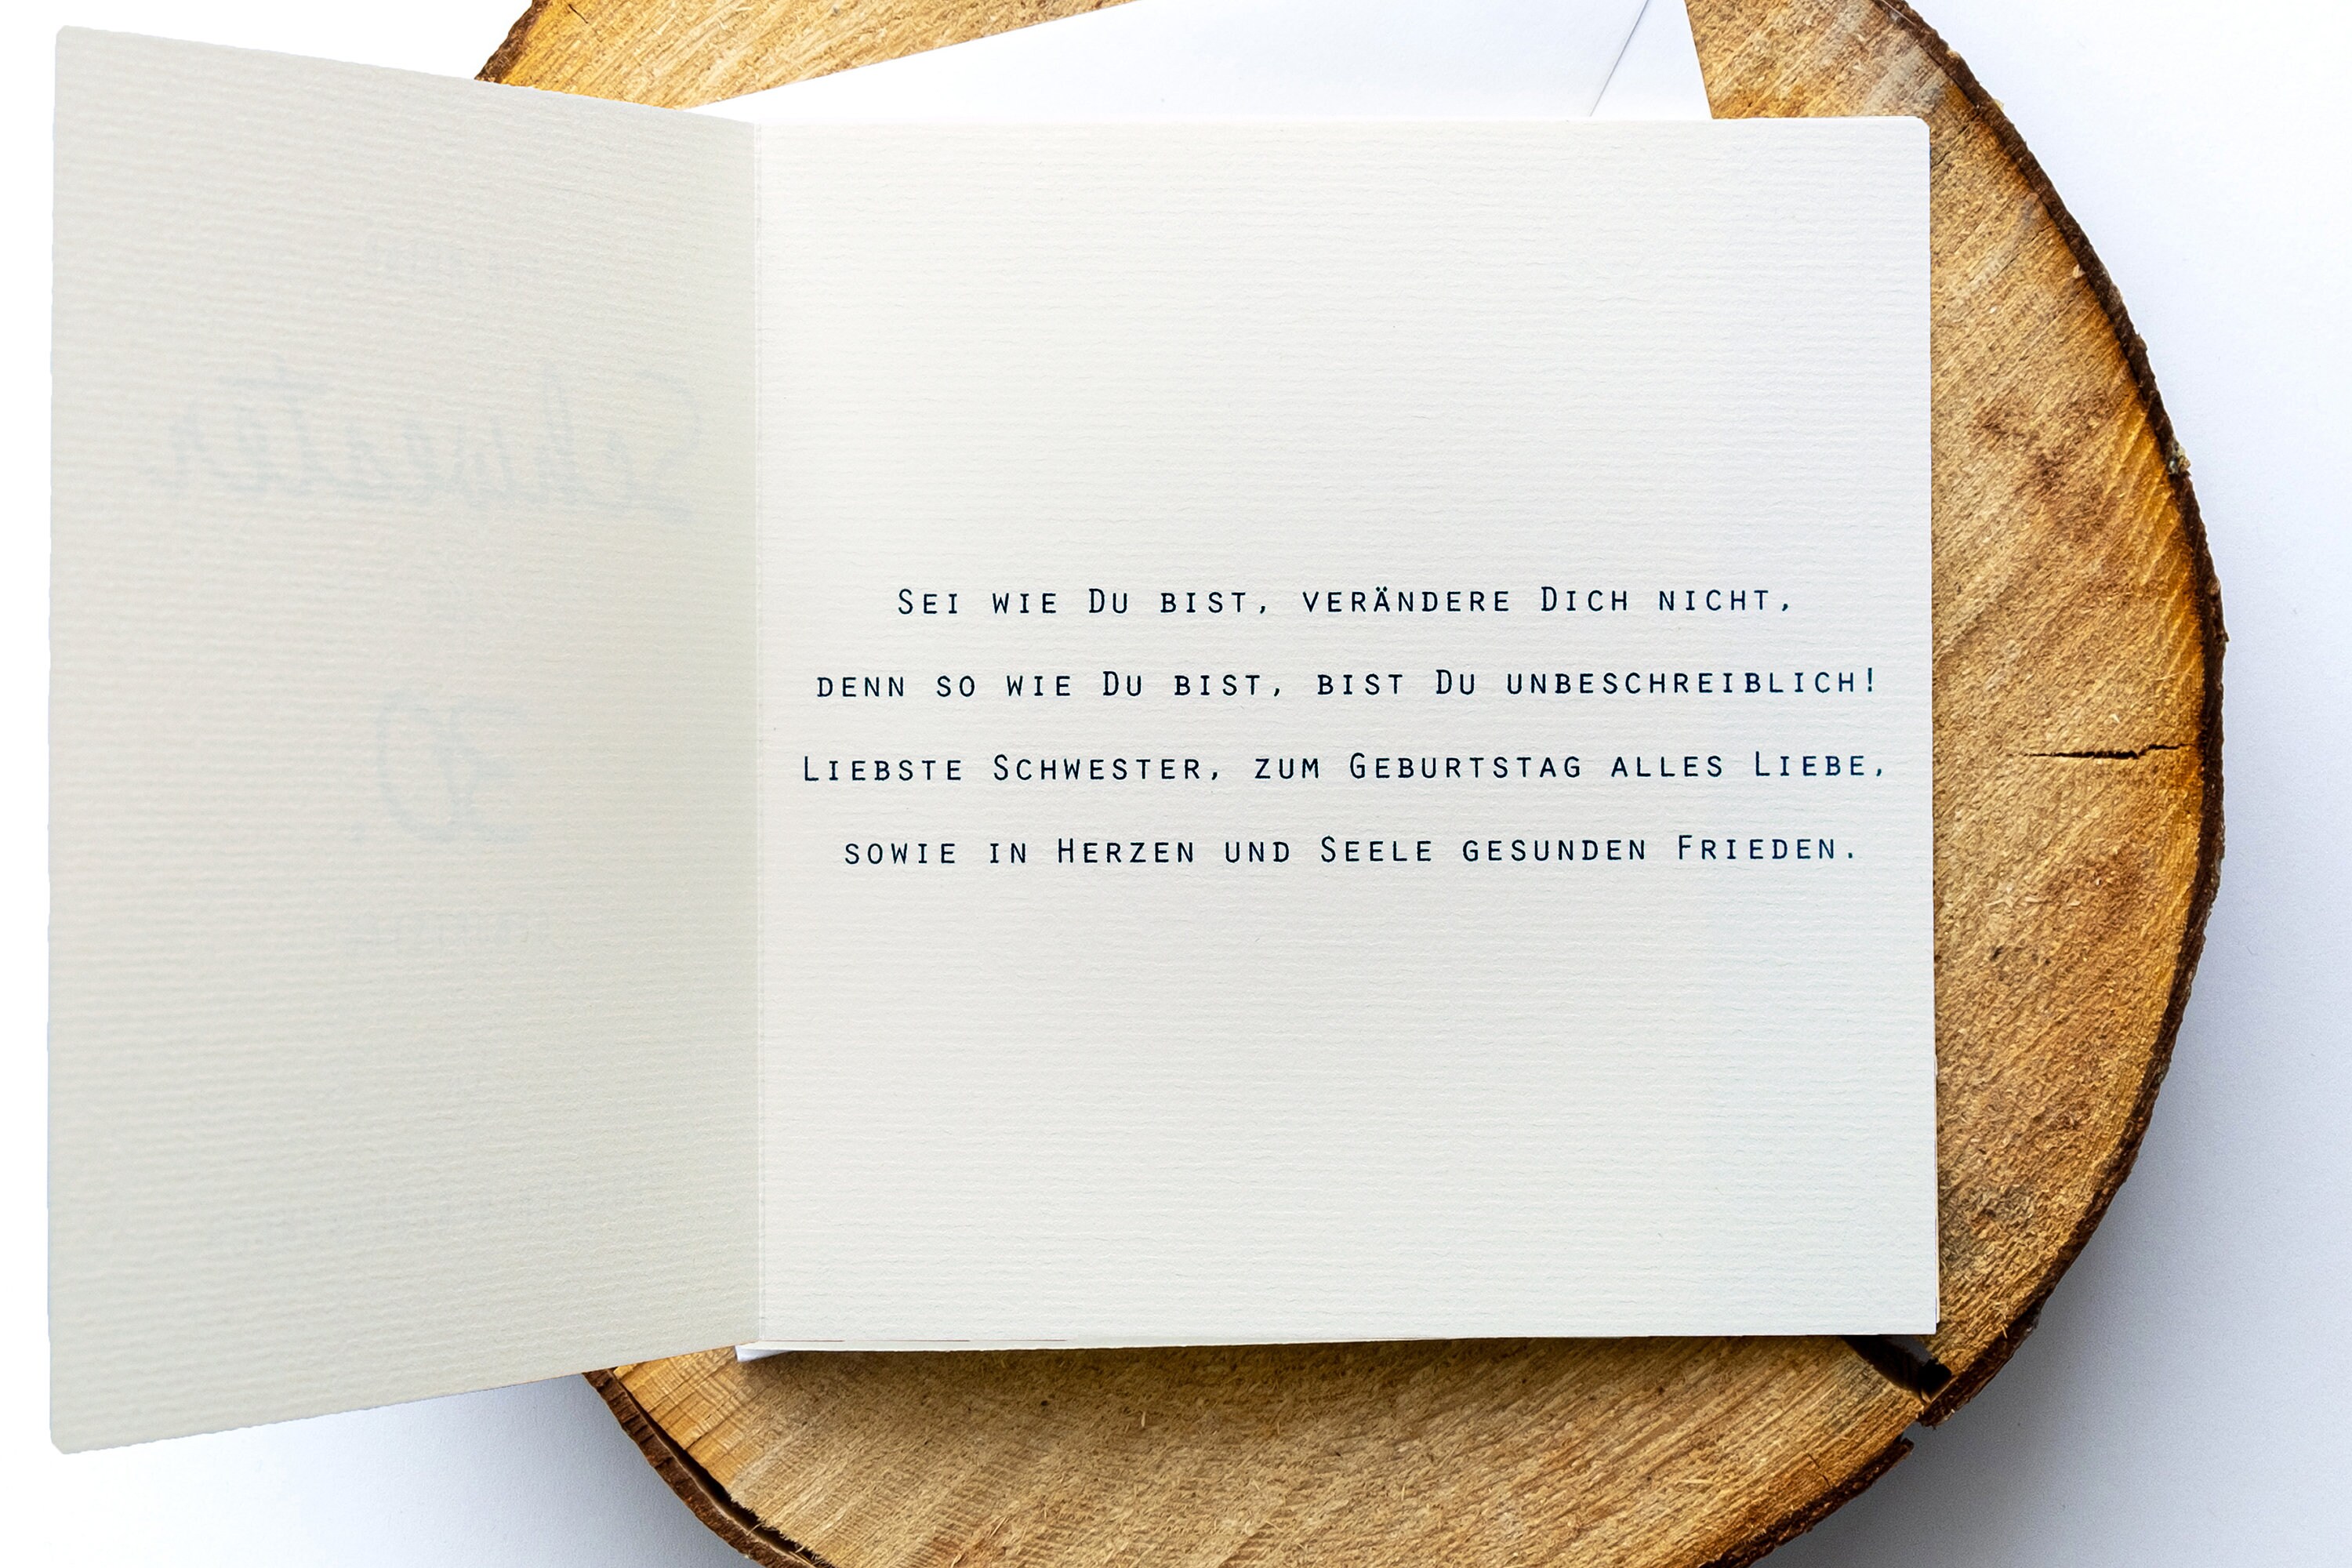 Schwester
Sei wie Du bist, verändere Dich nicht,
denn so wie Du bist, bist Du unbeschreiblich!
Liebste Schwester, zum Geburtstag alles Liebe,
sowie in Herzen und Seele gesunden Frieden.